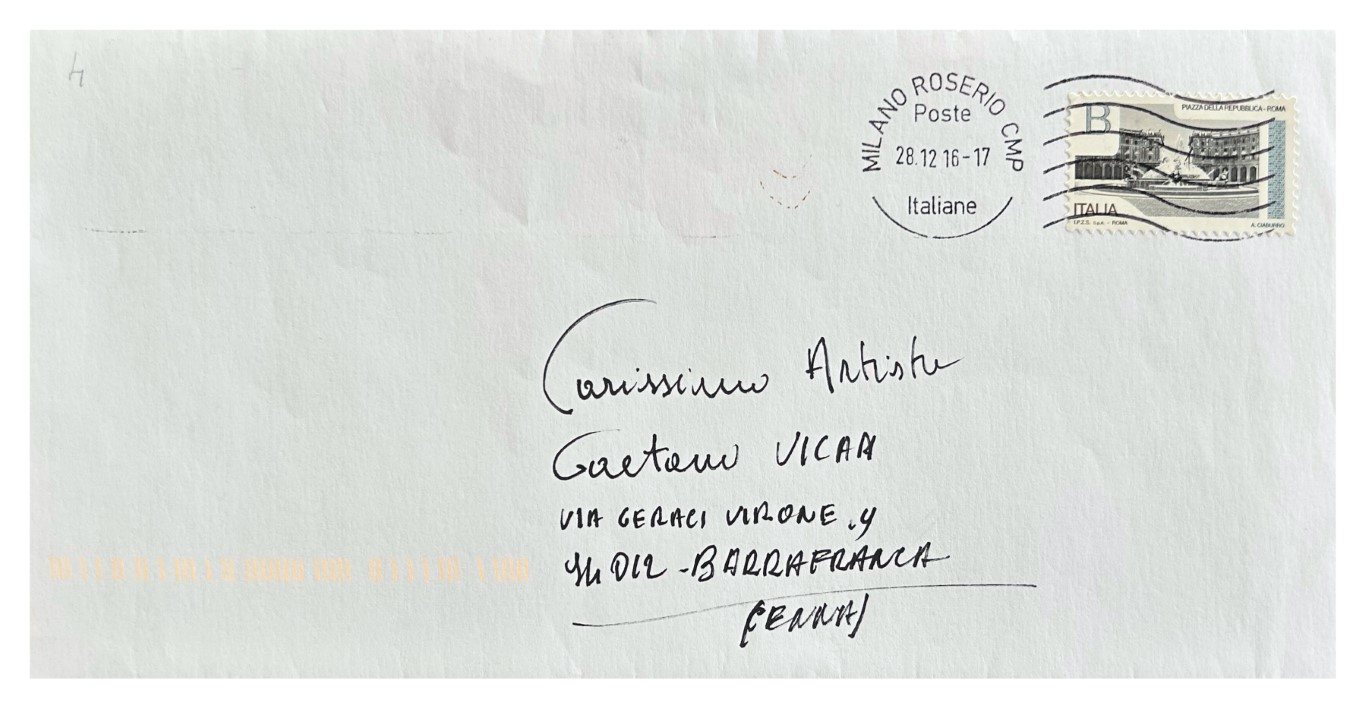 4
MILANO ROSERIO CMP
Poste
28.12 16-17
Italiane
B
PIAZZA DELLA REPUBBLICA - ROMA
ITALIA
I.P.Z.S. S.p.A. - ROMA
A. CIABURRO
Carissimo Artista
Gaetano VICARI
VIA GERACI VIRONE, 4
94012 - BARRAFRANCA
(ENNA)